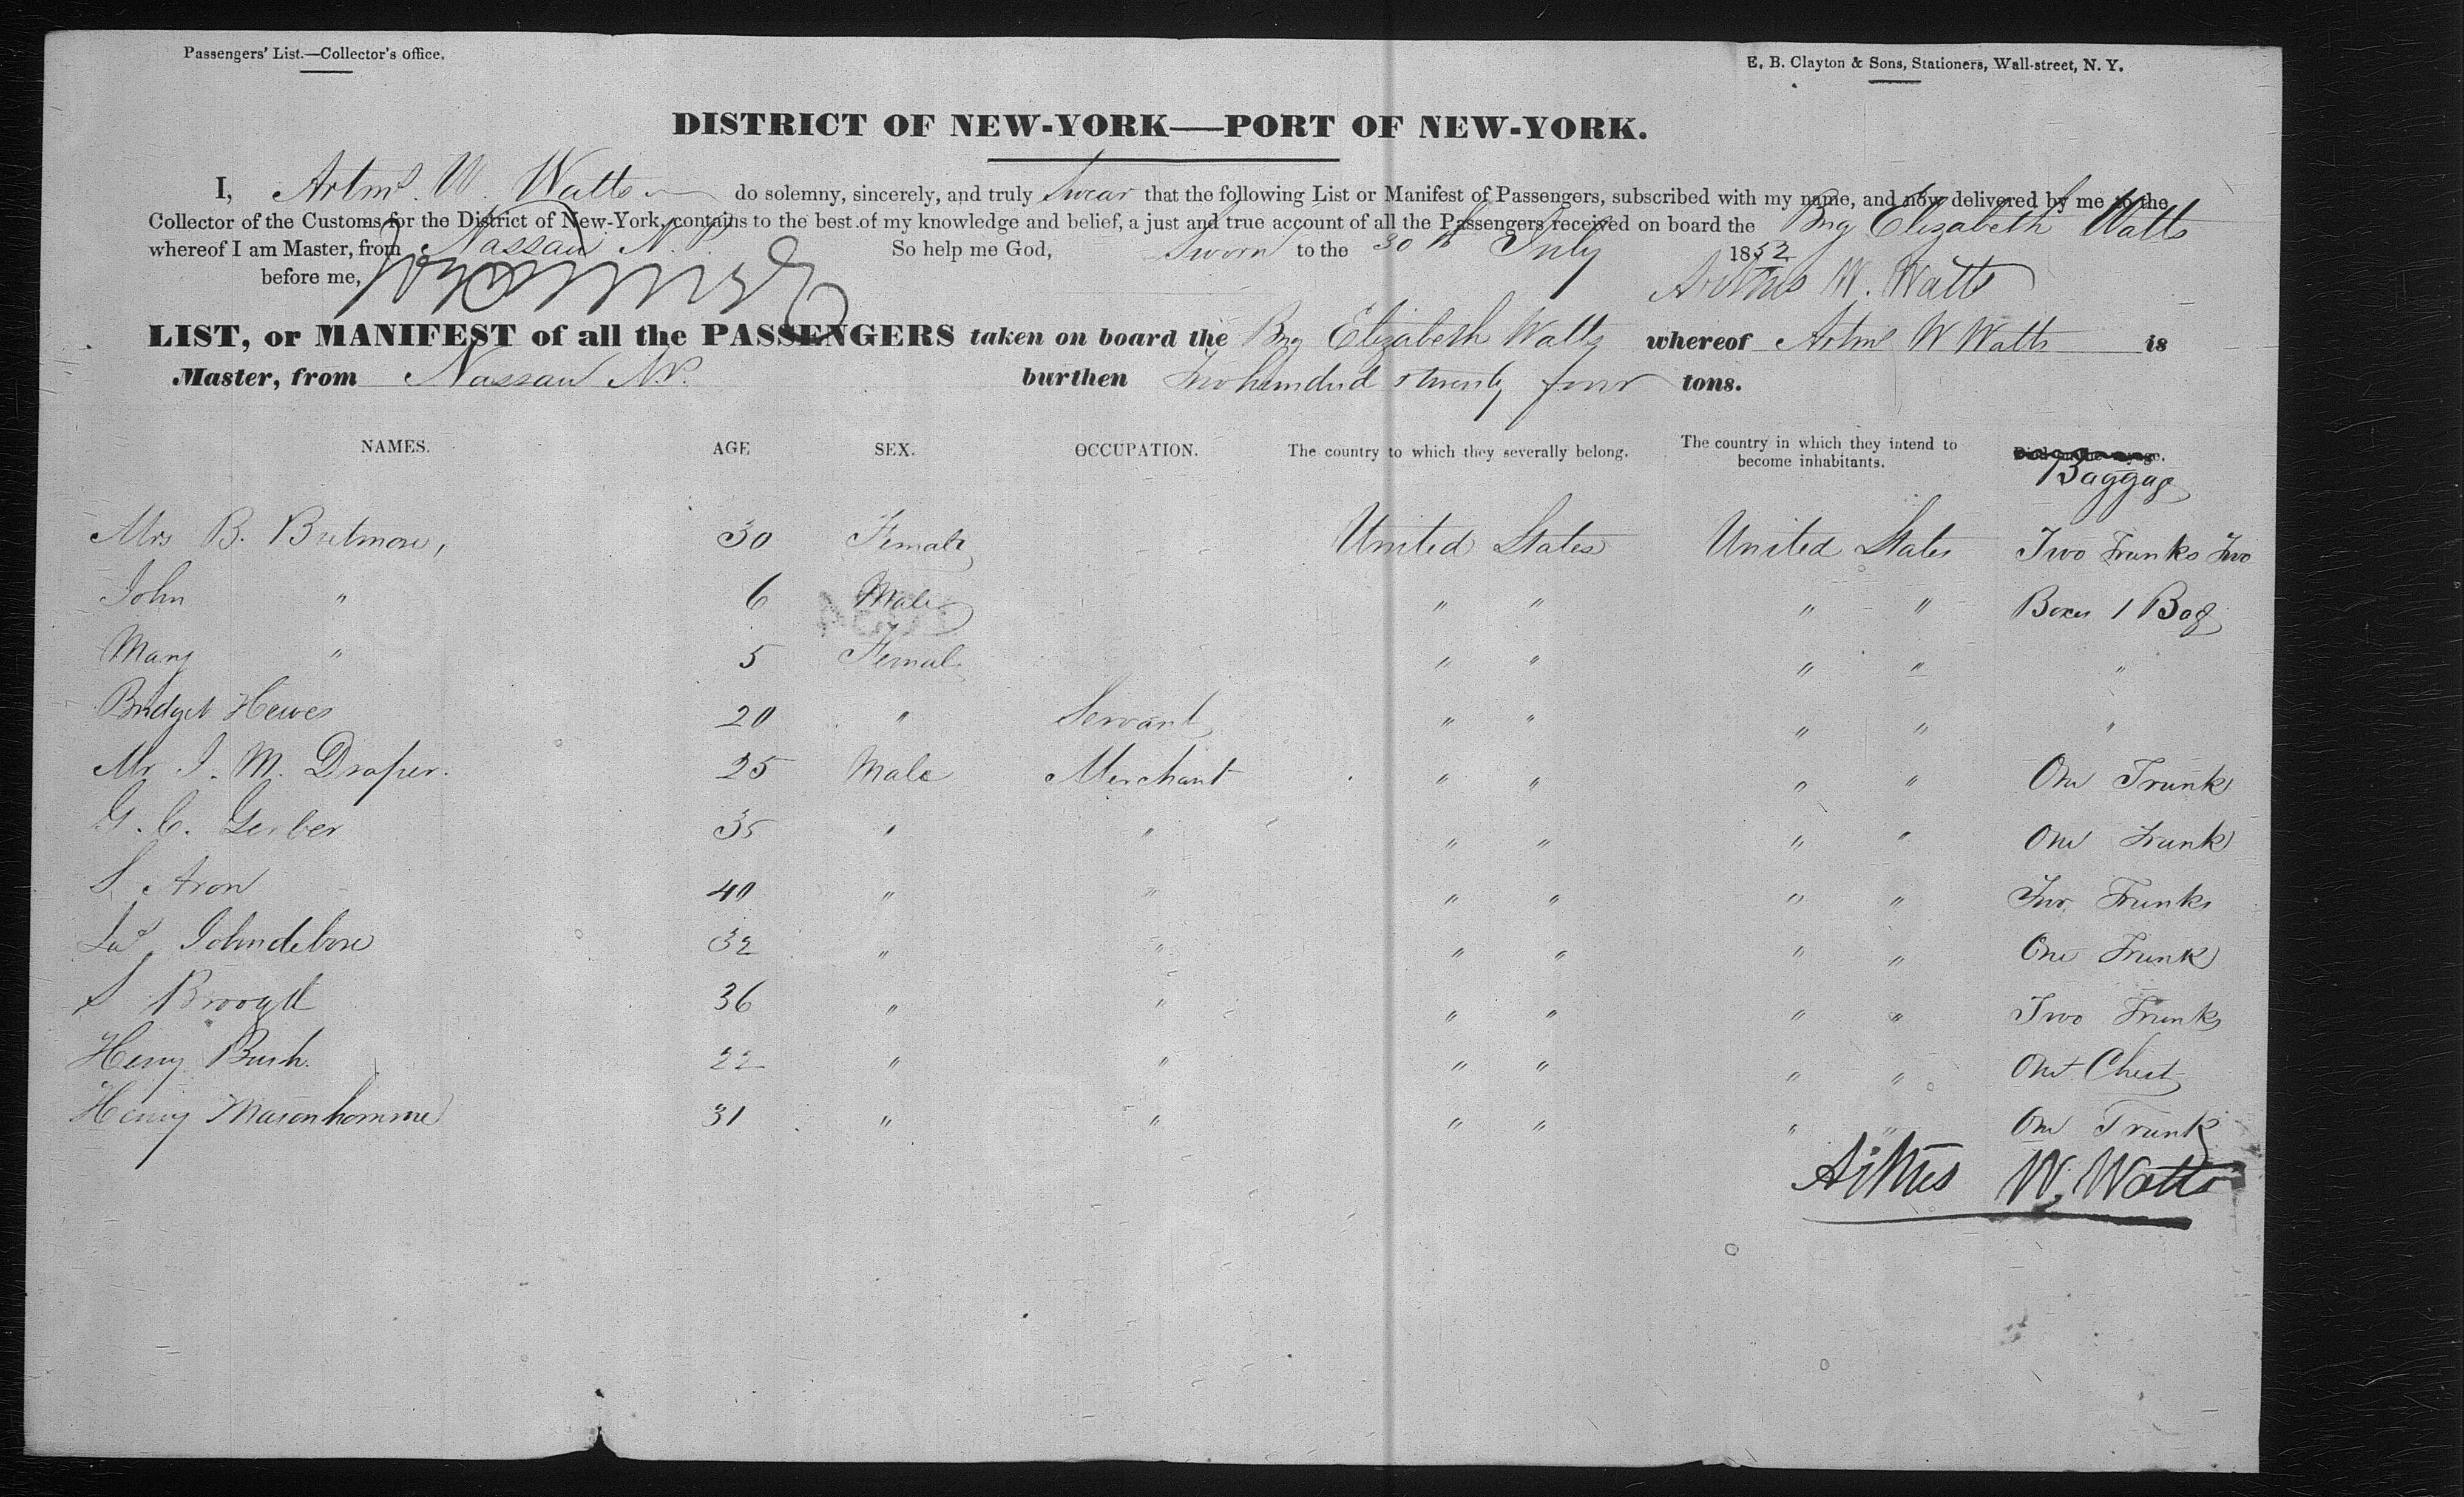 Passengers' List.—Collector's office.
E. B. Clayton & Sons, Stationers, Wall-street, N. Y.
DISTRICT OF NEW-YORK—PORT OF NEW-YORK.
I, Artms W. Watts do solemny, sincerely, and truly swear that the following List or Manifest of Passengers, subscribed with my name, and now delivered by me to the
Collector of the Customs for the District of New-York, contains to the best of my knowledge and belief, a just and true account of all the Passengers received on board the Brig Elizabeth Watts
whereof I am Master, from Nassau N.P. So help me God, Sworn to the 30th July 1852
before me, W. Watts
LIST, or MANIFEST of all the PASSENGERS taken on board the Brig Elizabeth Watts whereof Artms W Watts is
Master, from Nassau N.P. burthen Two hundred & twenty four tons.
NAMES. AGE SEX. OCCUPATION. The country to which they severally belong. The country in which they intend to become inhabitants. Baggage
Mrs B. 30 Female United States United States Two Trunks Two
John " 6 Male " " " " Boxes 1 Bag
Mary " 5 Female " " " " "
Bridget Hewes 20 " Servant " " " " "
Mr J. M. Draper. 25 Male Merchant " " " " One Trunk
G. C. Gerber 35 " " " " " " One Trunk
S. Aron 40 " " " " " " Two Trunks
32 " " " " " " One Trunk
S 36 " " " " " " Two Trunks
Henry Bush. 22 " " " " " " One Chest
Henry Masonhomme 31 " " " " " " One Trunk
W. Watts